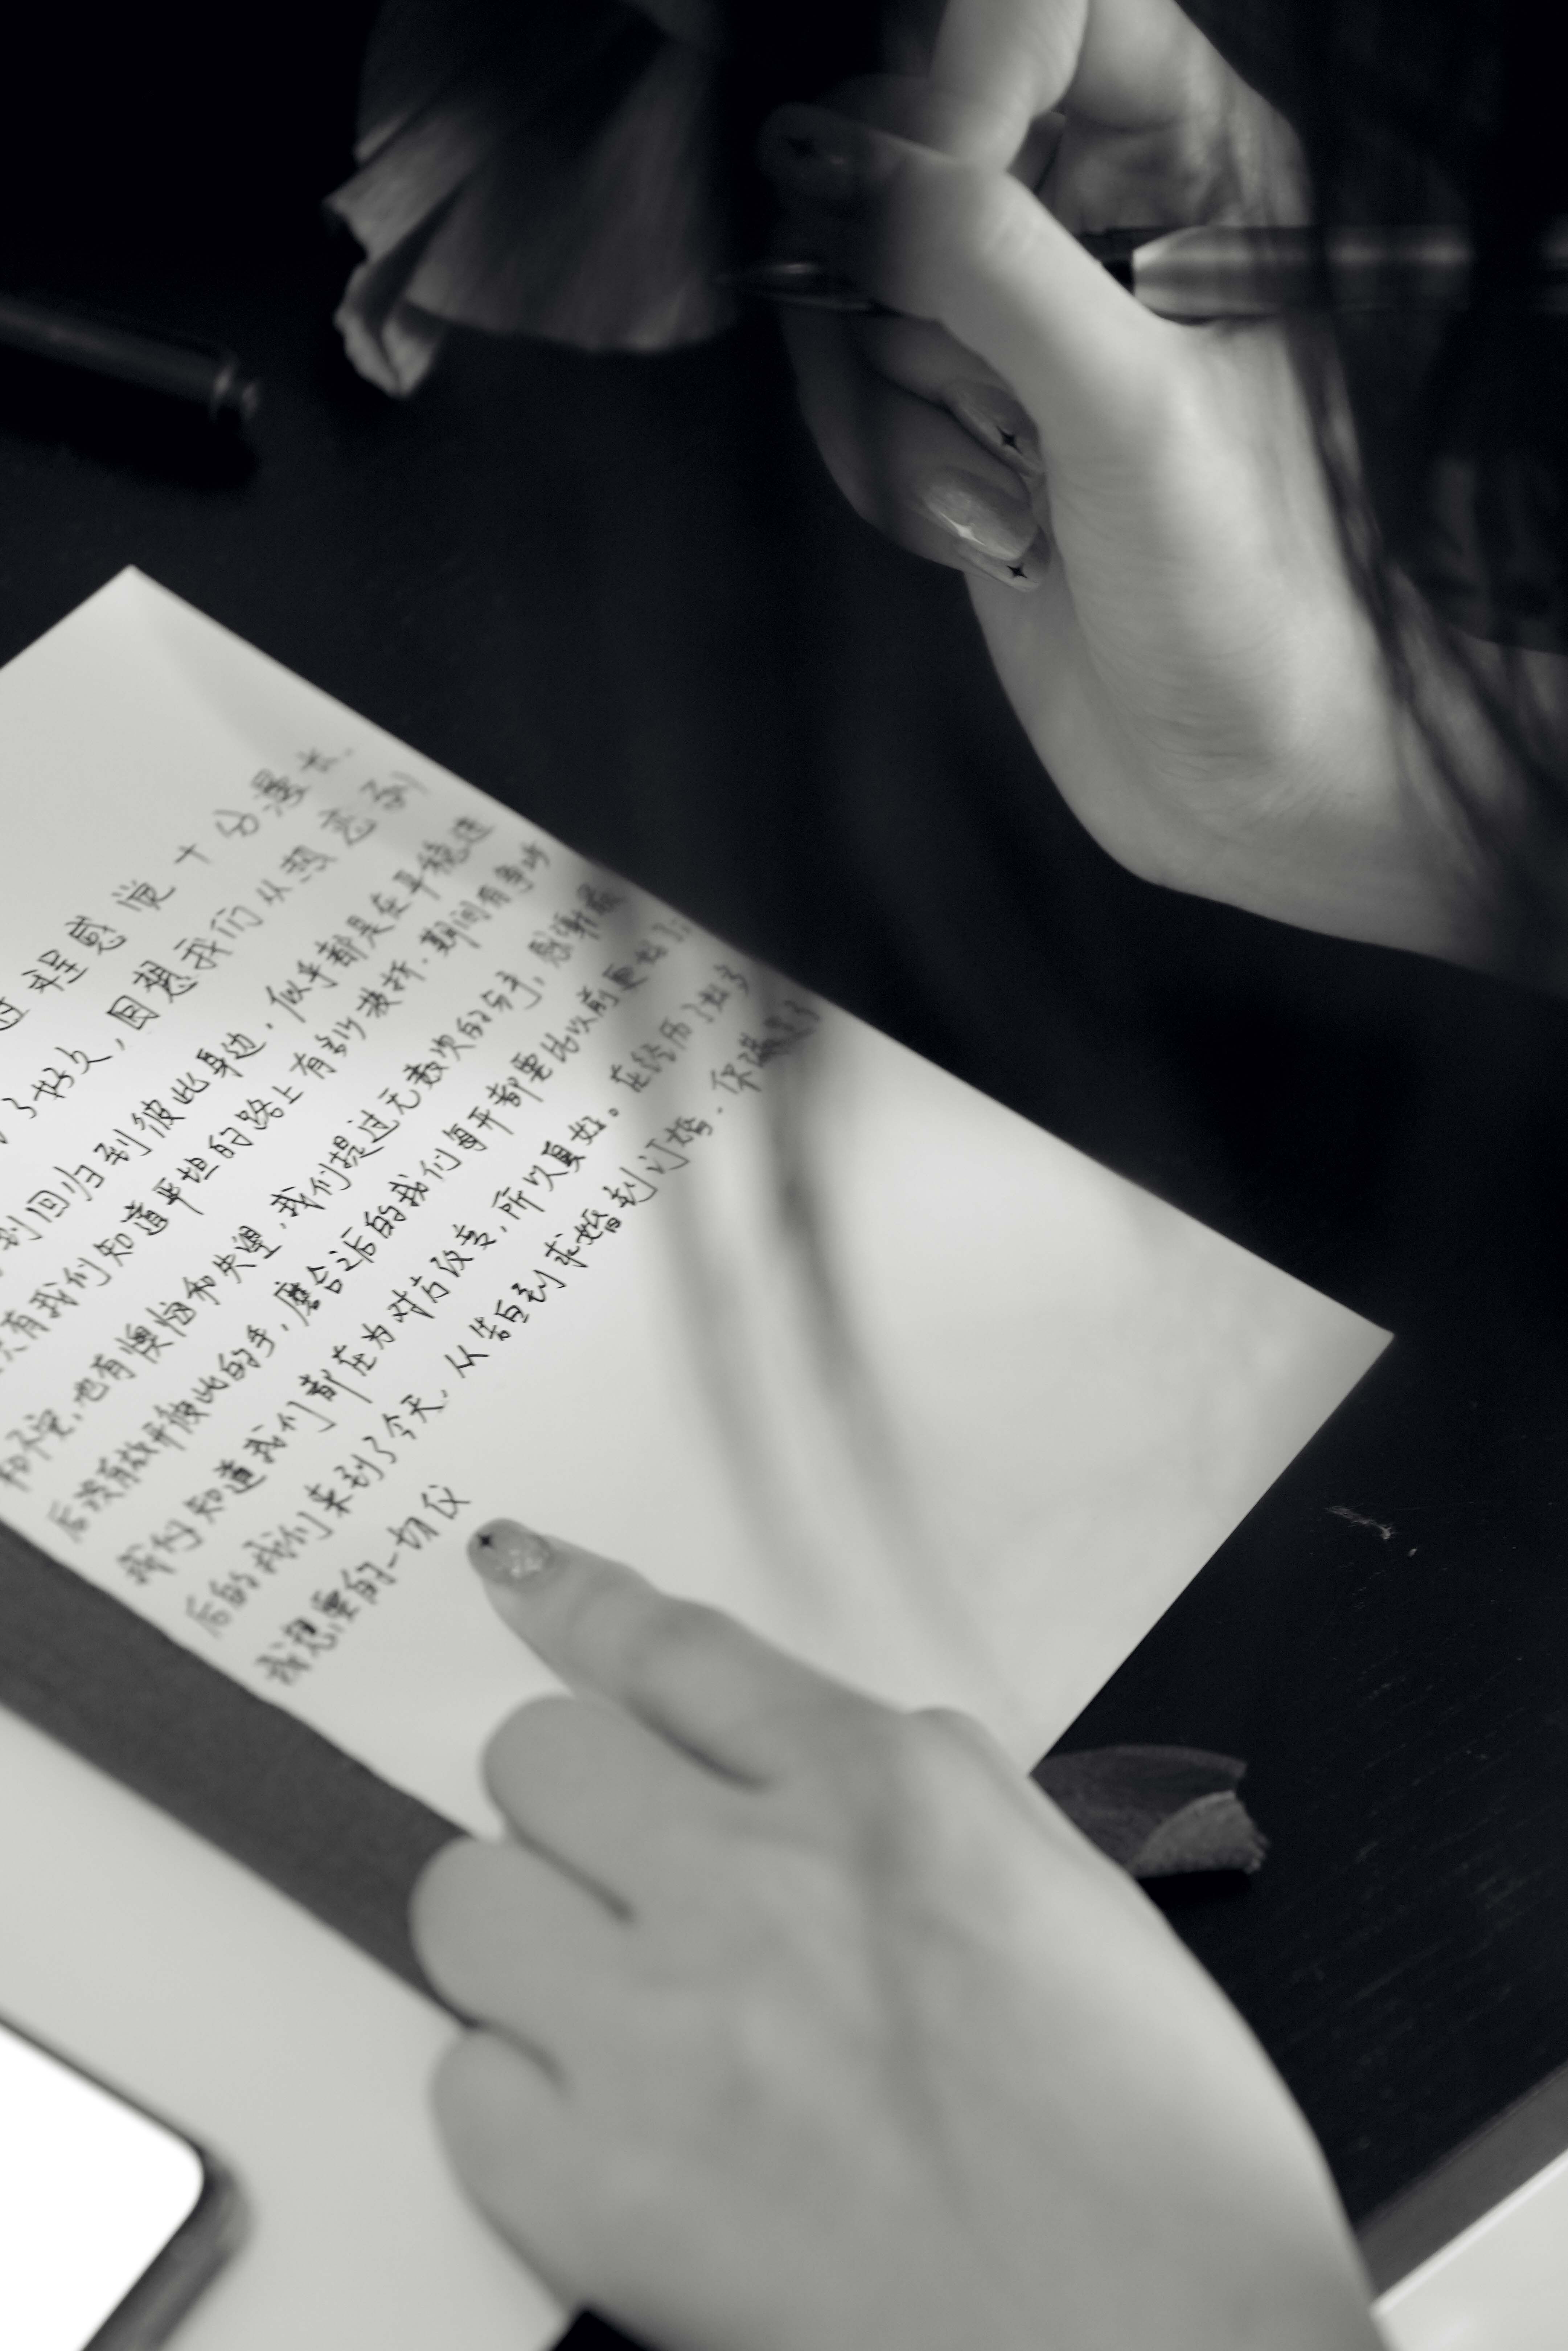 过程感觉十分漫长.
了好久，回想我们从热恋到
到回归到彼此身边，似乎都是在平稳进
只有我们知道平坦的路上有多少波折.期间有争吵
和不安，也有懊恼和失望，我们提过无数次的分手，感谢最
后没有放开彼此的手，磨合之后的我们每天都要比以前更好
我们知道我们都在为对方改变，所以更好。在经历了
后的我们来到了今天，从告白到求婚到订婚.你满足了
我想要的一切仪